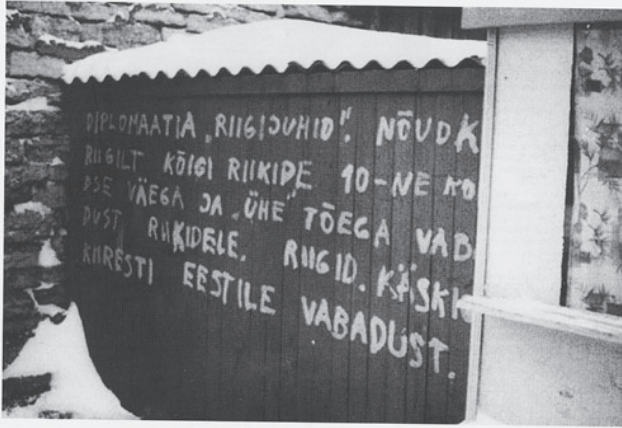 DIPLOMAATIA „RIIGIJUHID“. NÕUDK
RIIGILT KÕIGI RIIKIDE 10-NE KO
DSE VÄEGA JA „ÜHE“ TÕEGA VAB
DUST RIIKIDELE. RIIGID. KÄSKK
KIIRESTI EESTILE VABADUST.